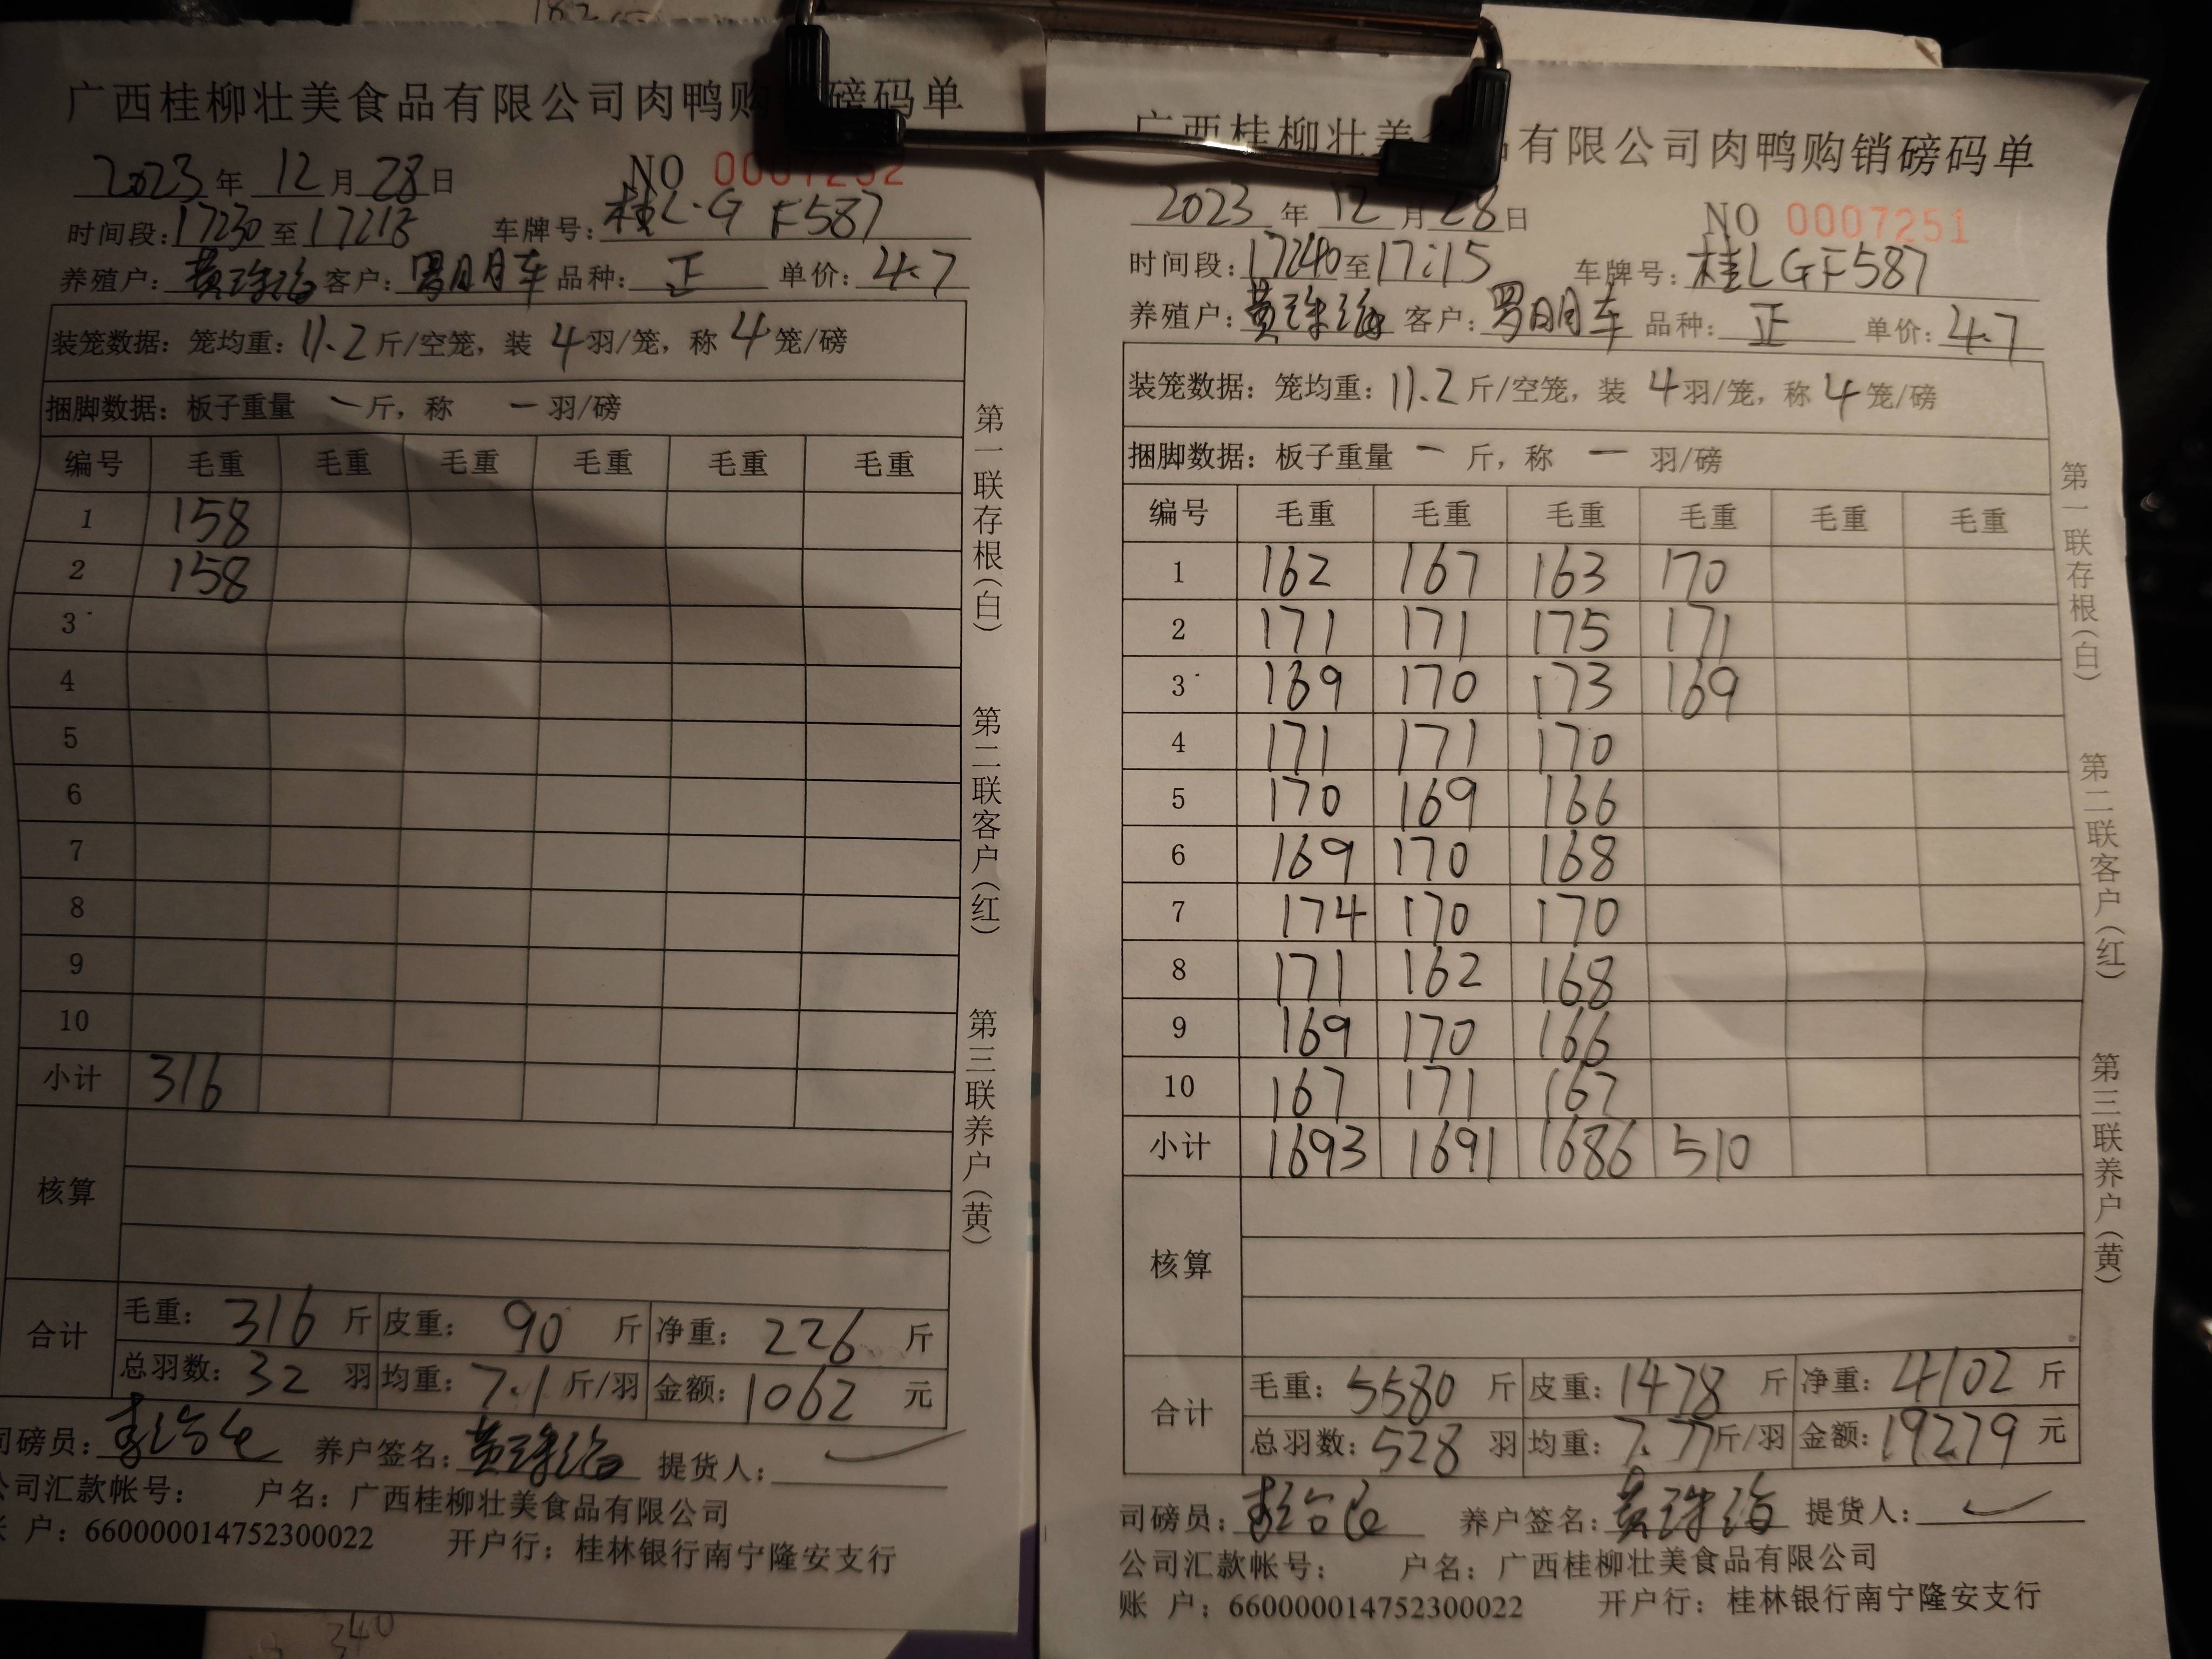 广西桂柳壮美食品有限公司肉鸭购磅码单
2023年 12月 28日 NO 0007252
时间段: 至 车牌号: 桂L·G F587
养殖户: 黄珠海 客户: 罗明月车 品种: 正 单价: 4.7
装笼数据: 笼均重: 11.2斤/空笼, 装 4羽/笼, 称 4笼/磅
捆脚数据: 板子重量 一斤, 称 一羽/磅
编号 毛重 毛重 毛重 毛重 毛重 毛重
1 158
2 158
3
4
5
6
7
8
9
10
小计 316
核算
合计 毛重: 316 斤 皮重: 90 斤 净重: 226 斤
总羽数: 32 羽 均重: 7.1斤/羽 金额: 1062 元
司磅员: 养户签名: 黄珠海 提货人:
公司汇款帐号: 户名: 广西桂柳壮美食品有限公司
账 户: 660000014752300022 开户行: 桂林银行南宁隆安支行
第一联存根(白) 第二联客户(红) 第三联养户(黄)
广西桂柳壮美食有限公司肉鸭购销磅码单
2023年 12月 28日 NO 0007251
时间段: 至17:15 车牌号: 桂LGF587
养殖户: 黄珠海 客户: 罗明月车 品种: 正 单价: 4.7
装笼数据: 笼均重: 11.2斤/空笼, 装 4羽/笼, 称 4笼/磅
捆脚数据: 板子重量 一斤, 称 一羽/磅
编号 毛重 毛重 毛重 毛重 毛重 毛重
1 162 167 163 170
2 171 171 175 171
3 169 170 173 169
4 171 171 170
5 170 169 166
6 169 170 168
7 174 170 170
8 171 162 168
9 169 170 166
10 167 171 167
小计 1693 1691 1686 510
核算
合计 毛重: 5580 斤 皮重: 1478 斤 净重: 4102 斤
总羽数: 528 羽 均重: 7.77斤/羽 金额: 19279 元
司磅员: 养户签名: 黄珠海 提货人:
公司汇款帐号: 户名: 广西桂柳壮美食品有限公司
账 户: 660000014752300022 开户行: 桂林银行南宁隆安支行
第一联存根(白) 第二联客户(红) 第三联养户(黄)
340